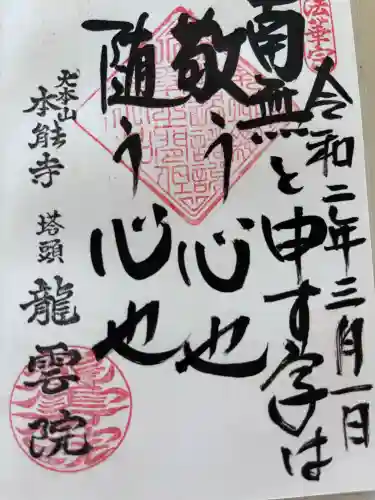 法華宗
令和二年三月一日
南無と申す字は
敬う心也
随う心也
大本山
本能寺
塔頭
龍雲院